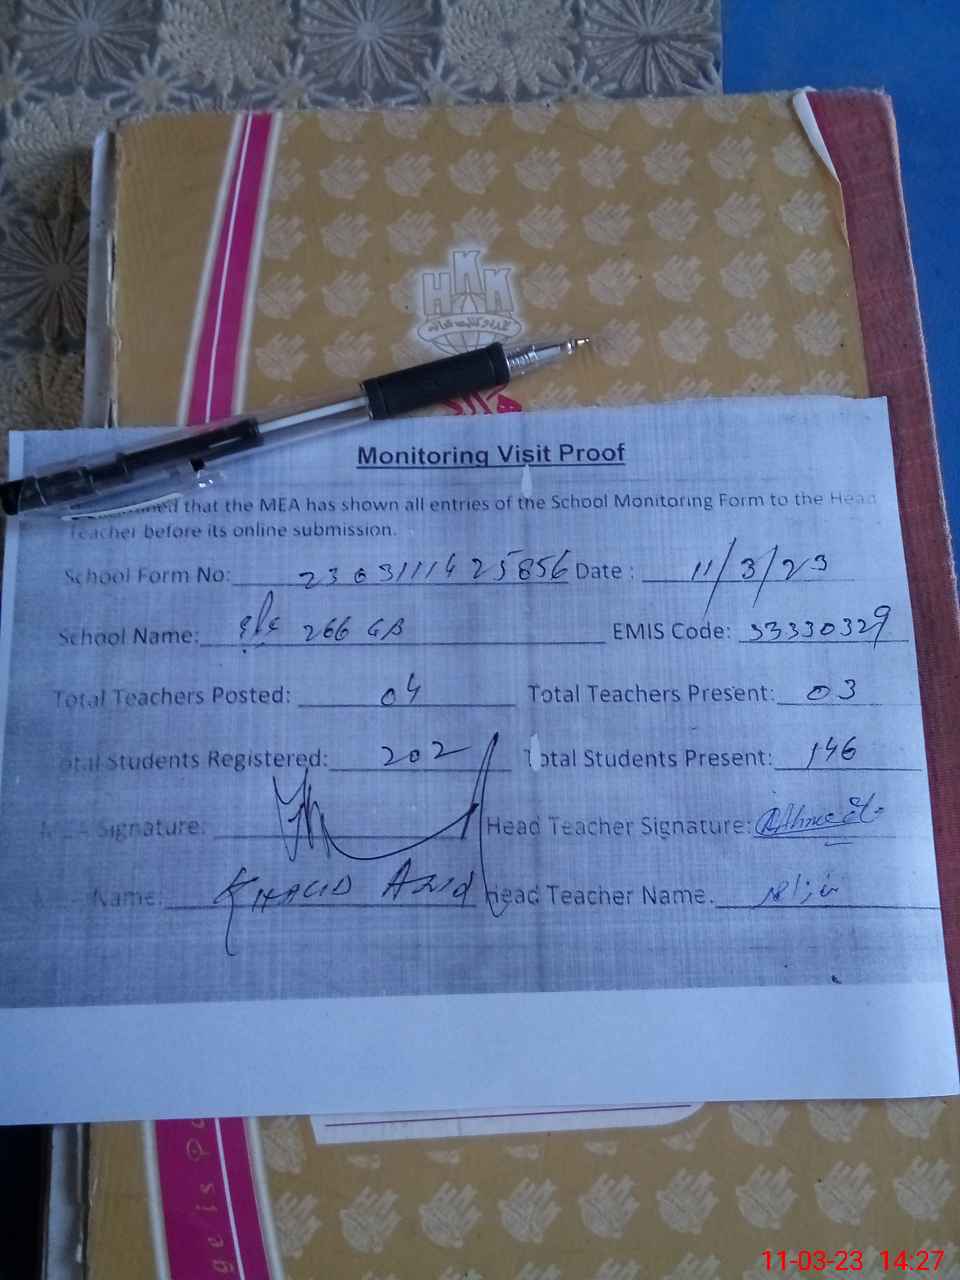 HKK
Monitoring Visit Proof
that the MEA has shown all entries of the School Monitoring Form to the Head
Teacher before its online submission.
School Form No: 2303111425856 Date : 11/3/23
School Name: 266 GB EMIS Code: 33330329
Total Teachers Posted: 04 Total Teachers Present: 03
Total Students Registered: 202 Total Students Present: 146
Signature: Head Teacher Signature:
Name: KHALID Head Teacher Name.
ge is
11-03-23 14:27